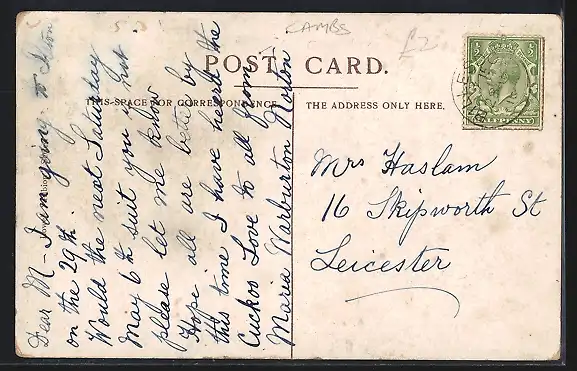 CAMBS
£2
POST CARD.
THIS SPACE FOR CORRESPONDENCE
THE ADDRESS ONLY HERE.
Dear M - I am going to
on the 29th.
Would the next Saturday
May 6th suit you, if not
please let me know
Hope all are better by
this time I have heard the
Cuckoo Love to all from
Maria Warburton Norton
Mrs Haslam
16 Skipworth St
Leicester